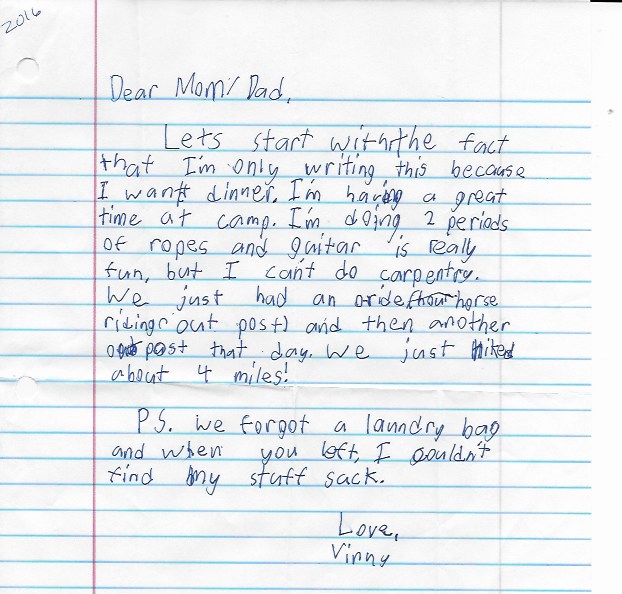 2016
Dear Mom/Dad,
Lets start with the fact
that I'm only writing this because
I want dinner. I'm having a great
time at camp. I'm doing 2 periods
of ropes and guitar is really
fun, but I can't do carpentry.
We just had an horse
riding out post) and then another
out post that day. We just hiked
about 4 miles!
P.S. we forgot a laundry bag
and when you left, I couldn't
find my stuff sack.
Love,
Vinny